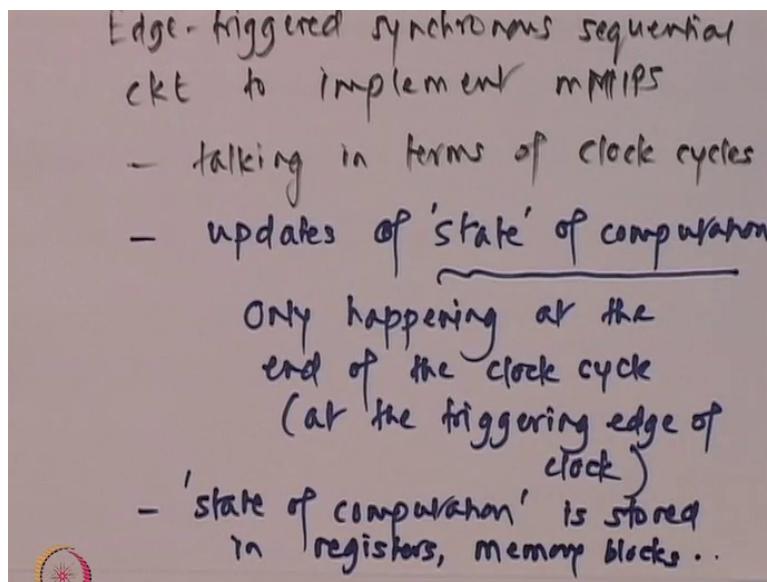 Edge-triggered synchronous sequential
ckt to implement mMIPS
- talking in terms of clock cycles
- updates of 'state' of computation
Only happening at the
end of the clock cycle
(at the triggering edge of
clock)
- 'state of computation' is stored
in registers, memory blocks..